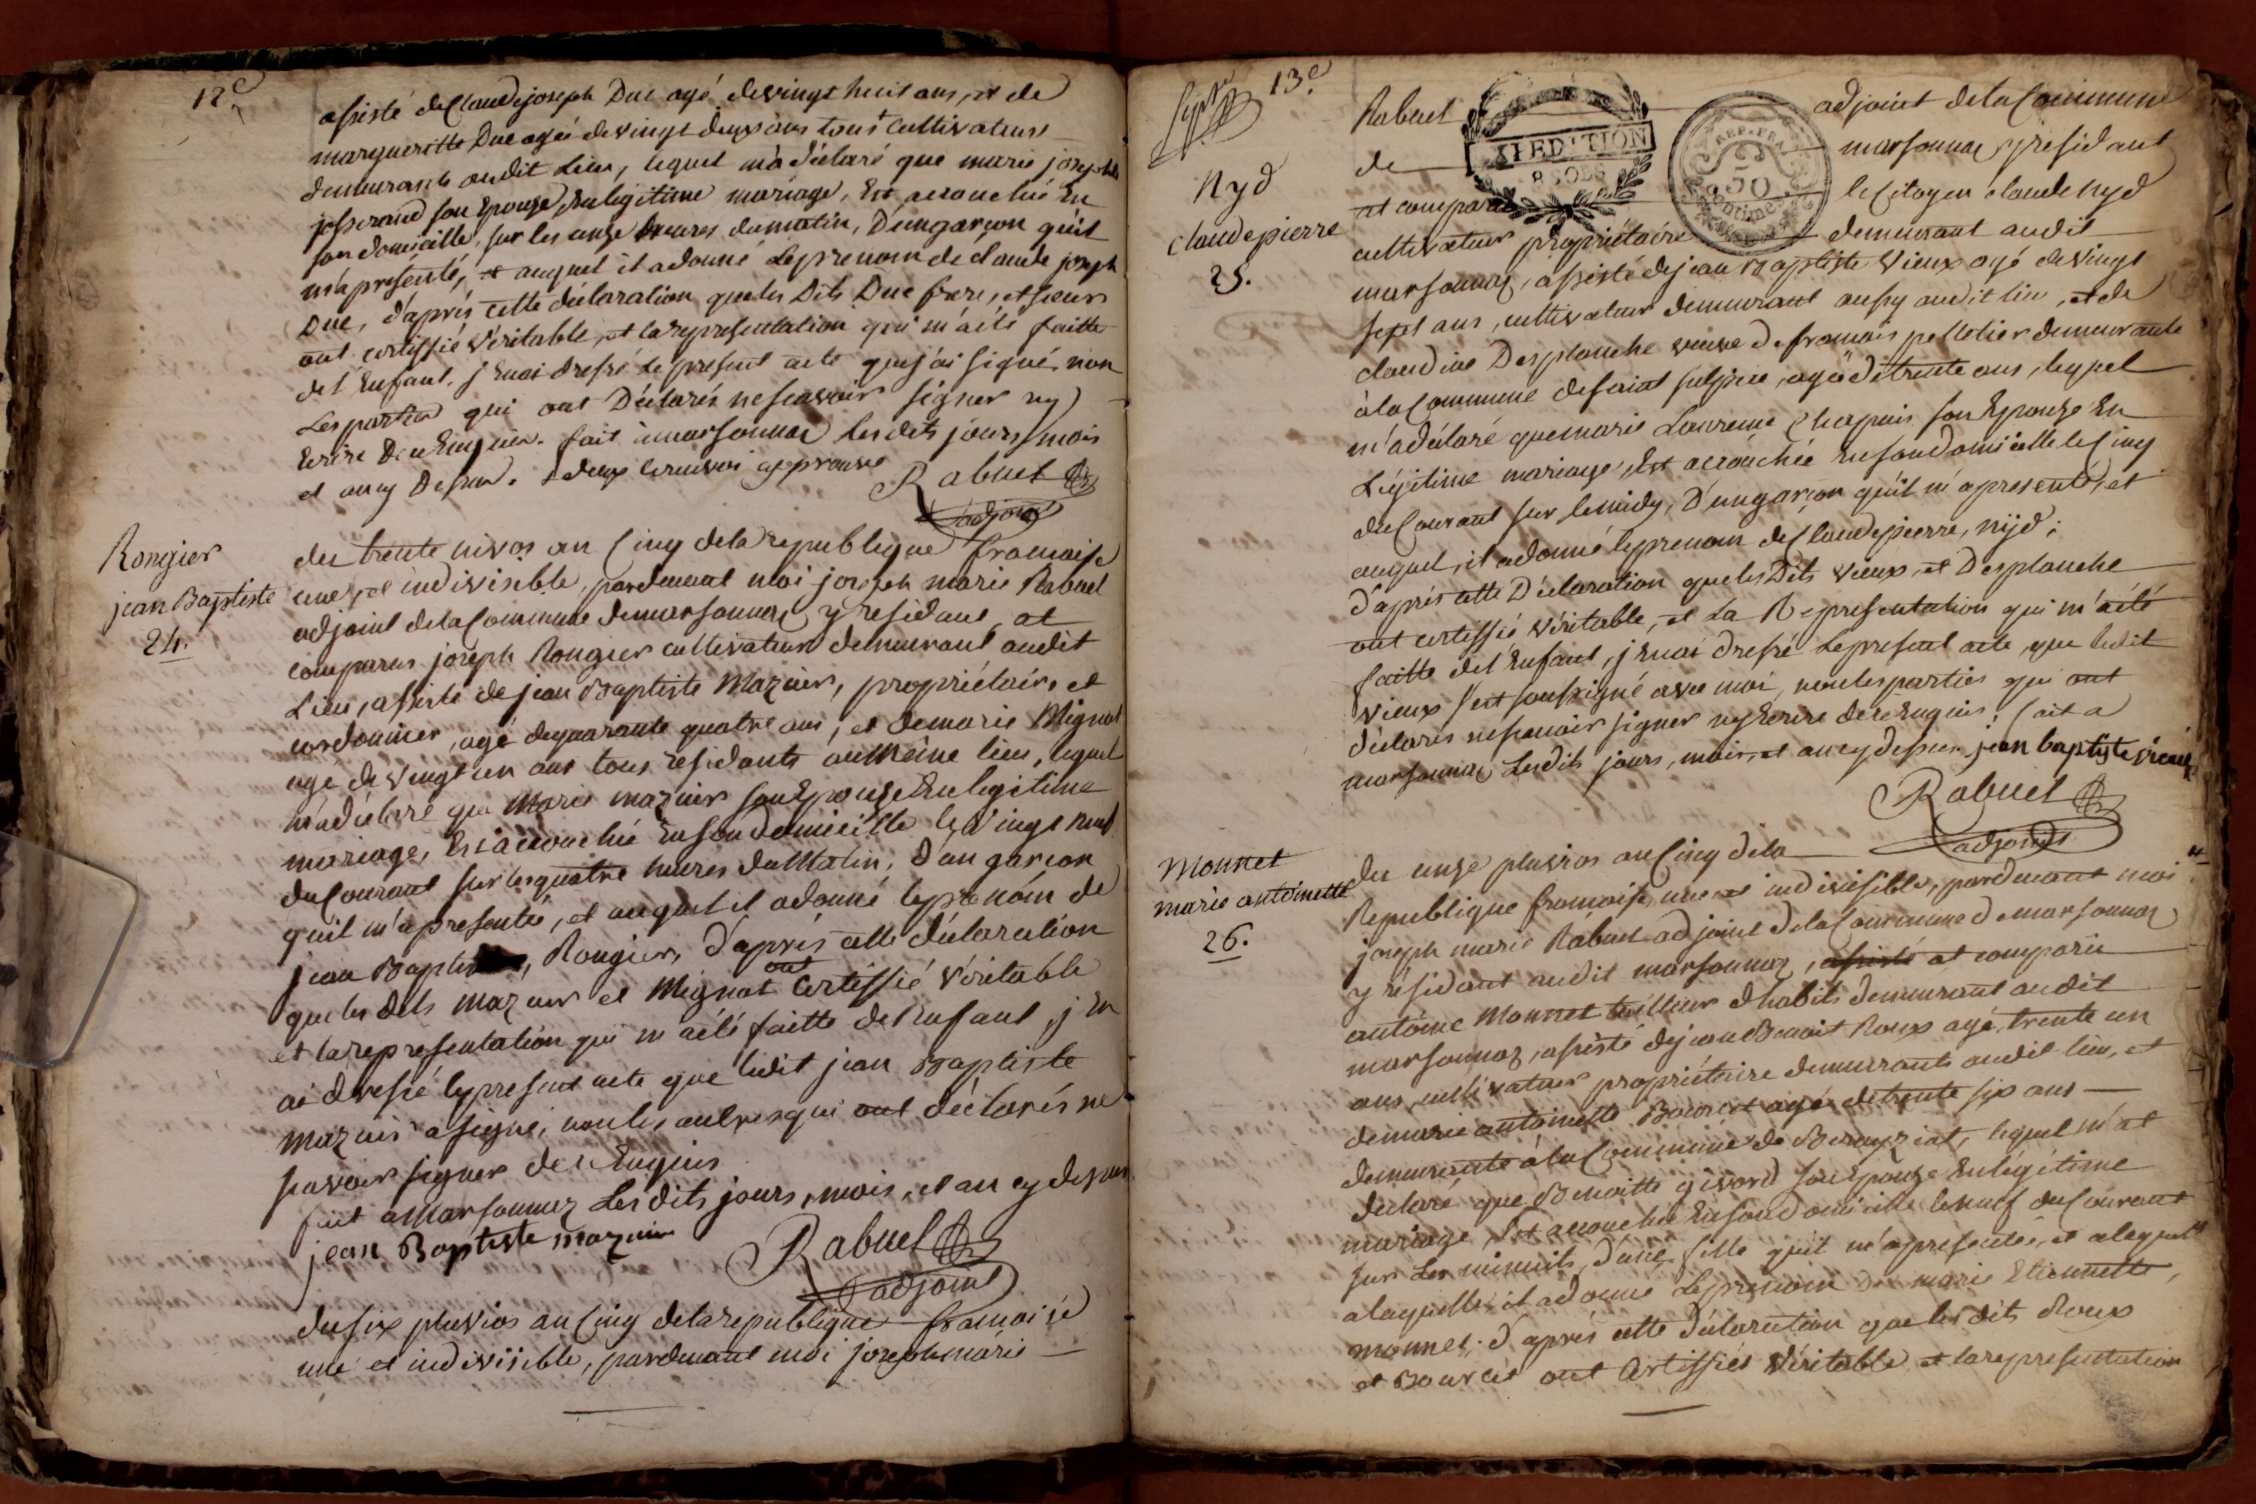 12e
assisté de Claude joseph Duc agé de vingt huit ans, et de
margueritte Duc agée de vingt deux ans tous + Cultivateurs
demeurants audit Lieu, lequel m'a déclaré que marie josephte
josserand son Epouze, En legitime mariage, Est accouchée En
son domicille, sur les onze heures du matin, D'un garçon qu'il
m'a présenté, et auquel il a donné Le prenom de claude joseph
Duc, d'après cette déclaration que les Dits Duc frere, et soeur
ont certiffié Véritable, et la representation qui m'a été faitte
de l'Enfant, j'En ai dressé Le present acte que j'ai signé, non
Les parties qui ont Déclarés ne scavoir signer ny
Ecrire De ce Enquis. fait a marsonnaz les dits jours, mois
et an cy Dessus. + deux le renvoi approuvé
Rabuel
adjoint
Rongier
jean Baptiste
24.
du trente nivos an Cinq de la republique francaise
une, et indivisible, pardevant moi joseph marie Rabuel
adjoint de la Commune de marsonnaz y residant, at
comparus joseph Rongier cultivateur demeurant audit
Lieu, assisté de jean Baptiste Mazuir, propriétaire et
cordonnier, agé de quarante quatre ans, et de marie Mignot
age de vingt un ans tous résidants au même lieu, lequel
m'a déclaré que Marie mazuir son Epouze En legitime
mariage, Est accouchée En son Domicille le Vingt neuf
du Courant sur les quatre heures du Matin, D'un garcon
qu'il m'a presenté, et auquel il a donné le prenom de
jean Baptiste, Rongier, d'après cette déclaration
que les dits mazuir et Mignot ont Certiffié Véritable
et la representation qui m'a été faitte de l'Enfant, j'En
ai dressé le present acte que ledit jean Baptiste
Mazuir a signé, non les autres qui ont déclarés ne
scavoir signer de ce Enquis
fait a Marsonnaz Les dits jours, mois, et an cy dessus
jean Baptiste mazuir
Rabuel
adjoint
du six pluvios an Cinq de la republique francaise
une et indivisible, pardevant moi joseph marie
13e
Nyd
Claude pierre
25.
Rabuel adjoint de la Commune
de marsonnaz y residant
at comparu le Citoyen claude Nyd
EXPEDITION
8 SOLS
REP. FRA.
50
Centimes
cultivateur propriétaire demeurant audit
marsonnaz, assisté de jean Baptiste Vieux agé de vingt
sept ans, cultivateur demeurant aussy audit lieu, et de
claudine Desplanche veuve de francois pelletier demeurante
à la Commune de saint sulpice, agée de trente ans, lequel
m'a déclaré que marie Laurence Chapuis son Epouze En
Légitime mariage, Est accouchée En son Domicille le Cinq
du Courant sur le midy, D'un garcon qu'il m'a presenté, et
auquel, il a donné le prenom de Claude pierre, nyd;
d'après cette Déclaration que les Dits vieux, et Desplanche
ont certiffié véritable, et La Representation qui m'a été
faitte de l'Enfant, j'En ai Dressé Le present acte, que ledit
vieux s'est soussigné avec moi, non les parties qui ont
déclarés ne scavoir signer ny Ecrire de ce Enquis; fait a
marsonnaz Les dits jours, mois, et an cy dessus jean baptiste vieux
Rabuel
adjoint
Monnet
marie antoinette
26.
du onze pluvios an Cinq de la
Republique francoise, une et indivisible, pardevant moi
joseph marie Rabuel adjoint de la Commune de marsonnaz
y résidant audit marsonnaz, assisté at comparu
antoine Monnet tailleur d'habits demeurant audit
marsonnaz, assisté de jean Benoit Roux agé, trente un
ans, cultivateur propriétaire demeurants audit lieu, et
de marie antoinette Bourcet agée de trente six ans
demeurante à la Commune de Bereyziat, lequel m'at
déclaré que Benoitte givord son Epouze En légitime
mariage Est accouchée En son domicille le neuf du Courant
sur Les minuits, d'une fille qu'il m'a presentée, et alequelle
a laquelle il a donné Le prenom de marie Etiennette,
monnet; d'après cette déclaration que les dits Roux
et Bourcet ont Certiffiés Véritable et la representation